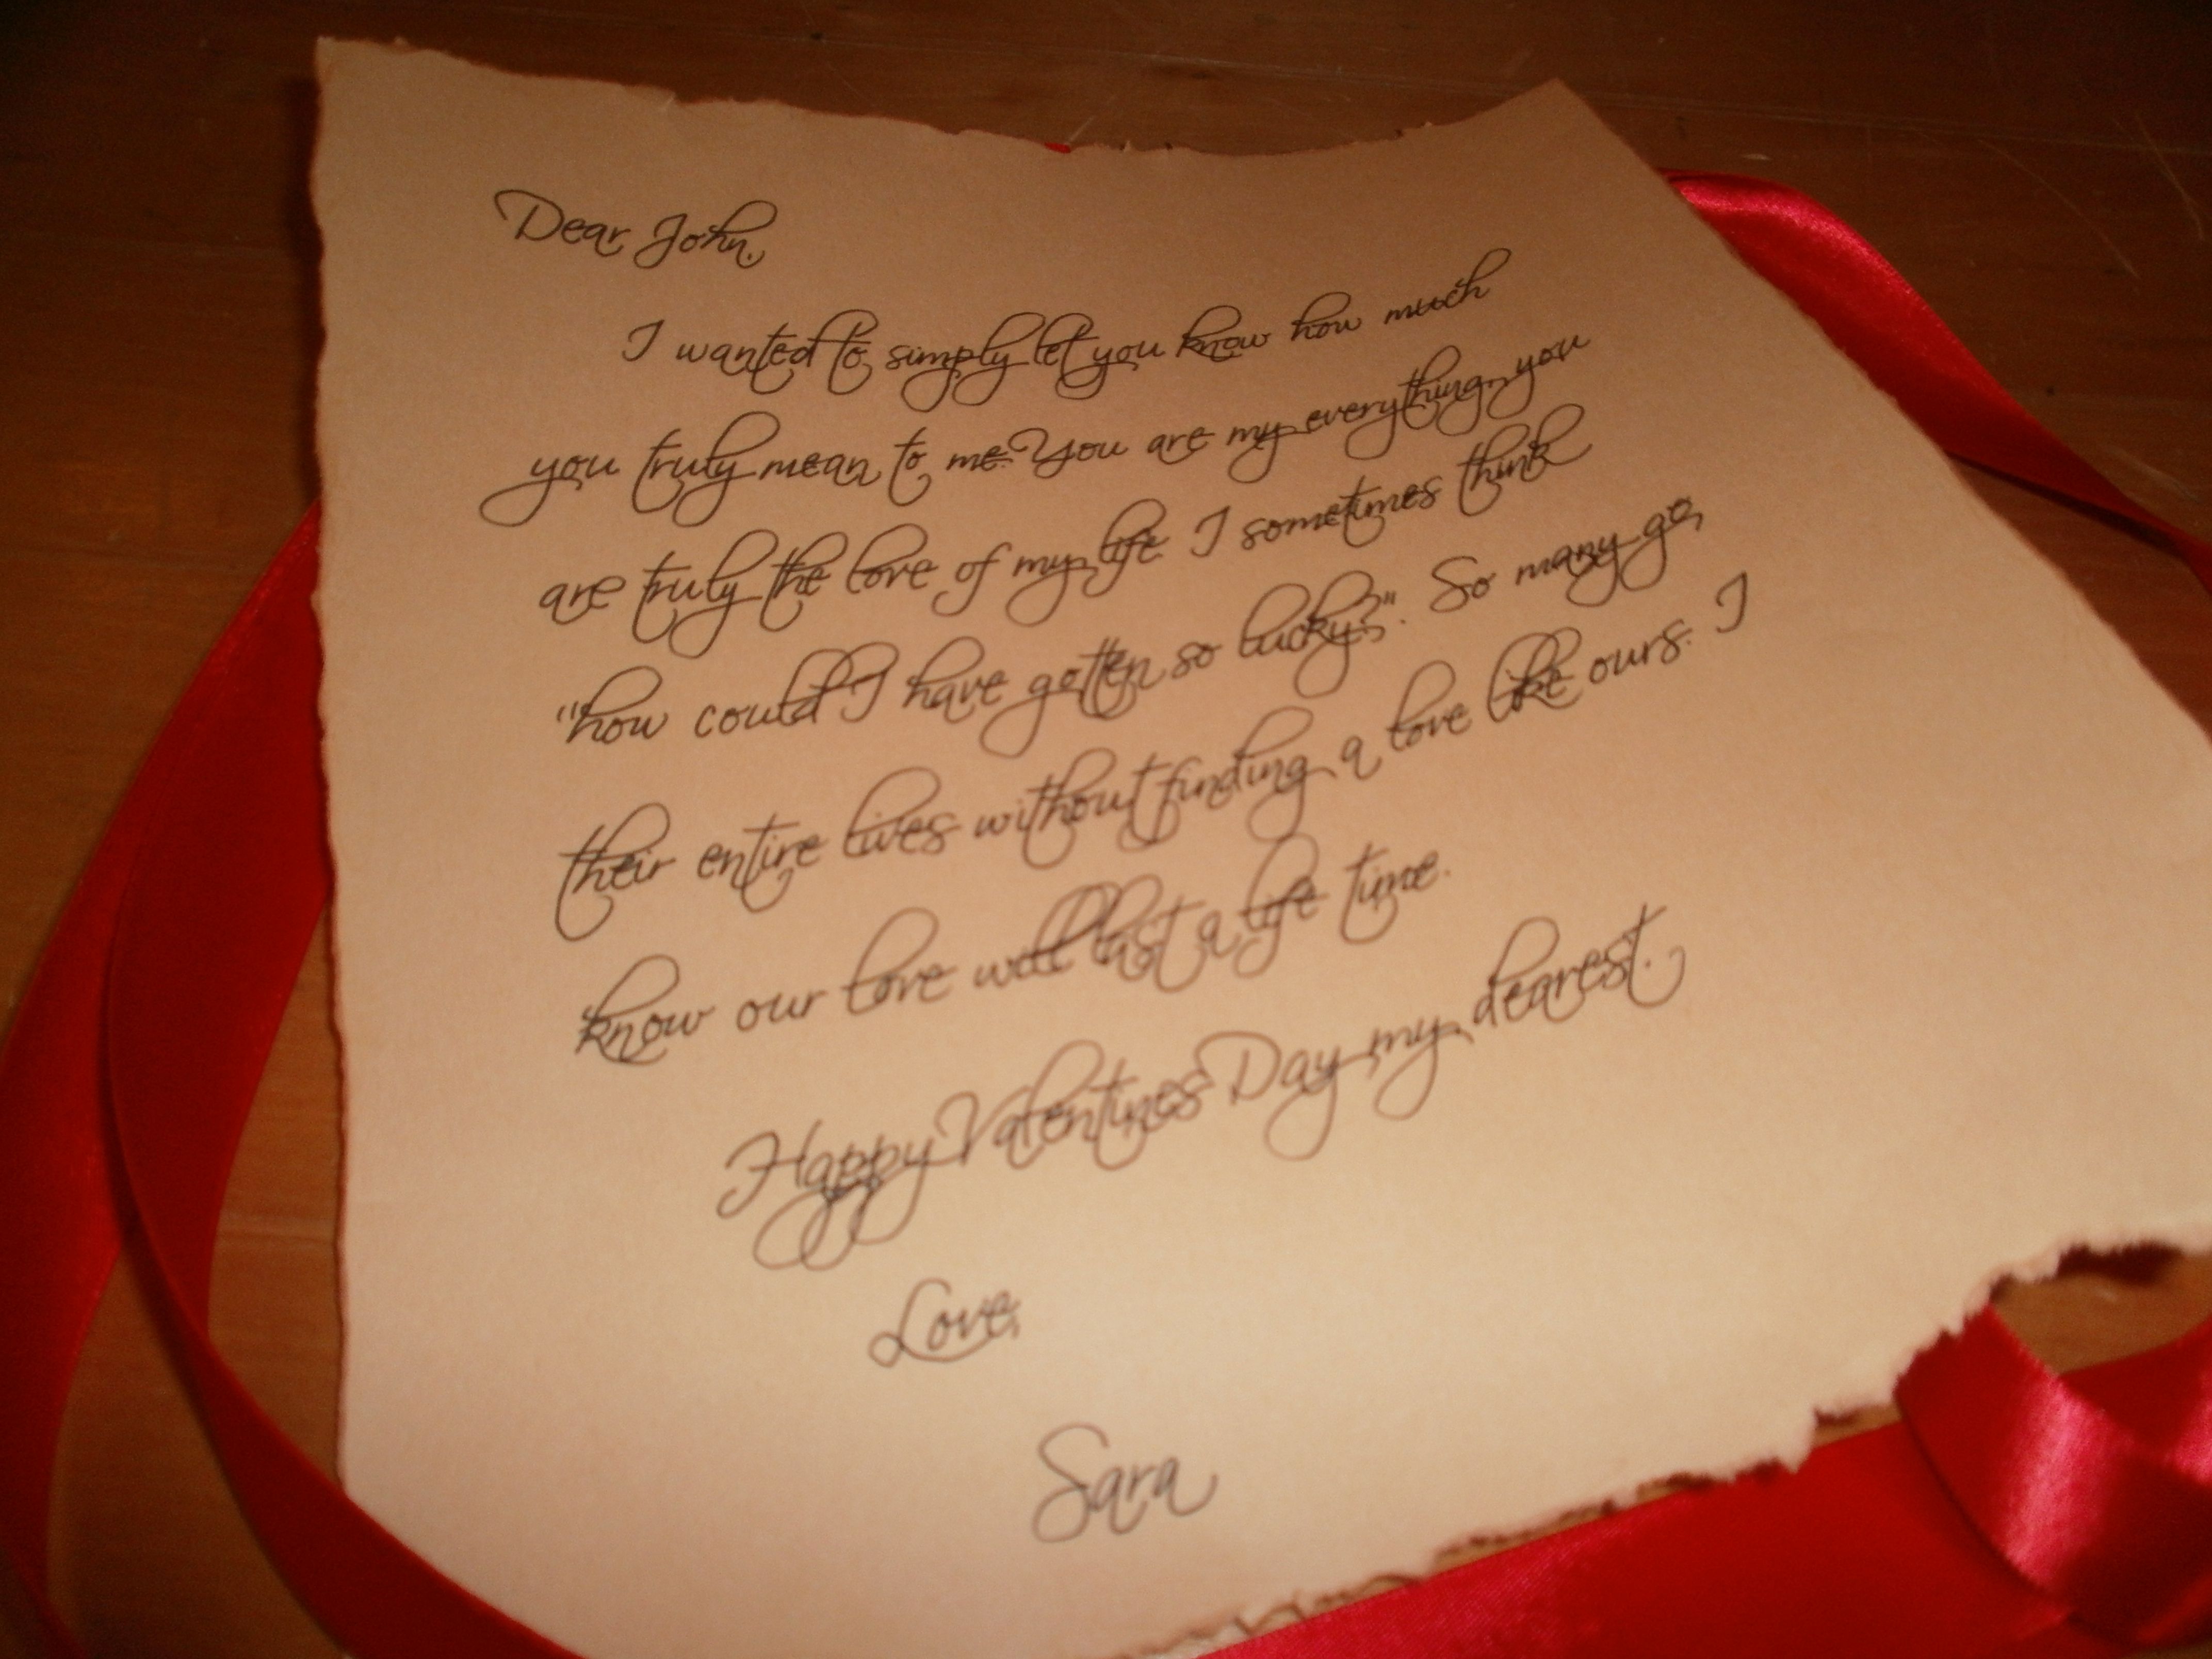 Dear John,
I wanted to simply let you know how much
you truly mean to me. You are my everything, you
are truly the love of my life. I sometimes think
"how could I have gotten so lucky?". So many go
their entire lives without finding a love like ours. I
know our love will last a life time.
Happy Valentines Day my dearest.
Love,
Sara